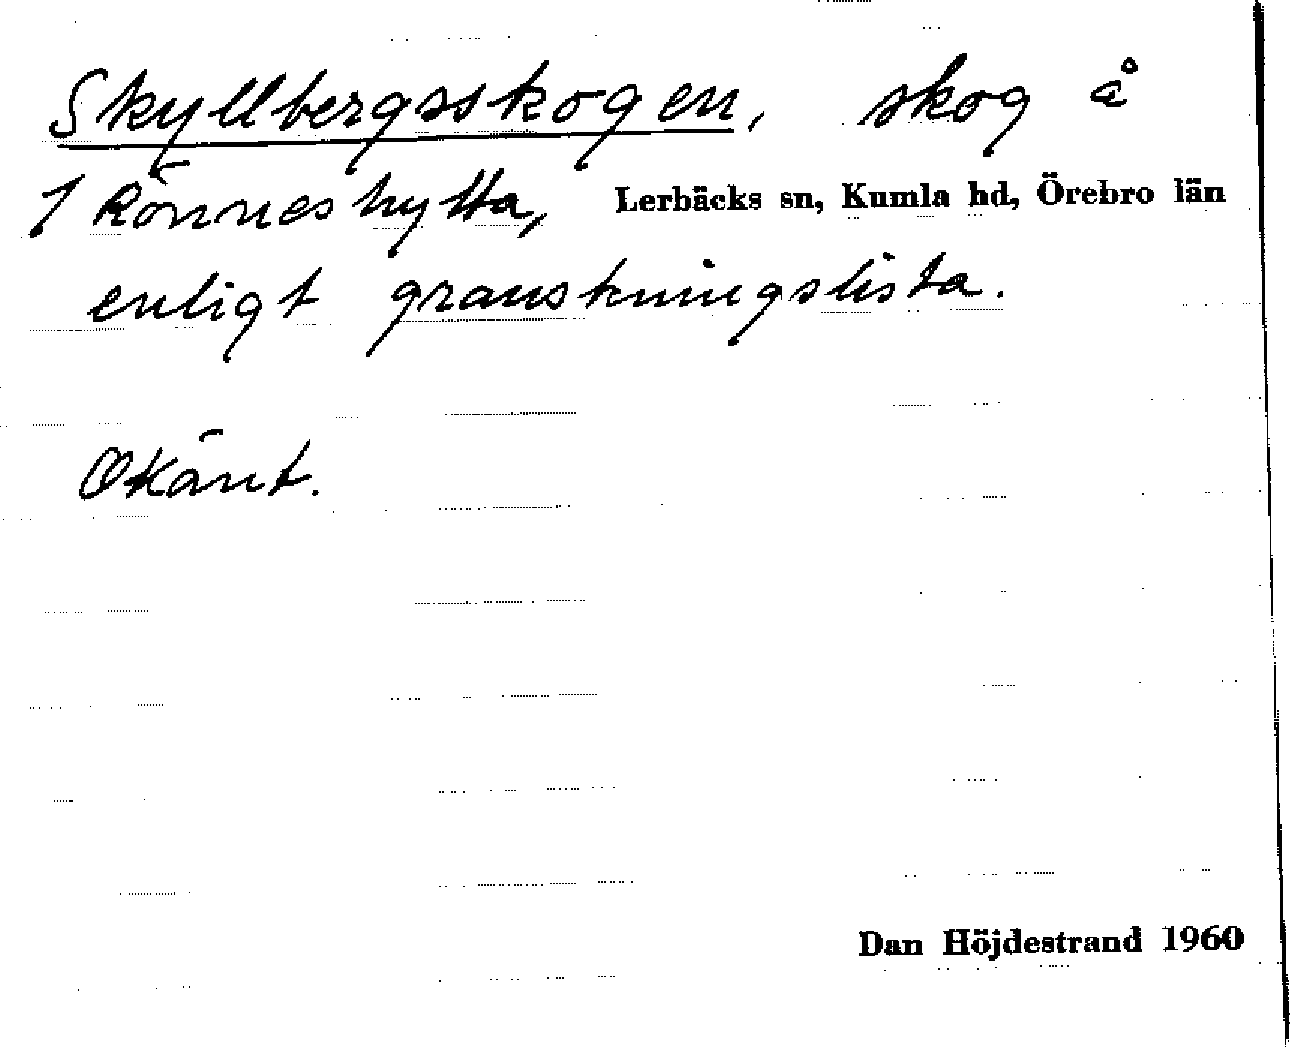 Skyllbergsskogen, skog å
1 Rönneshytta, Lerbäcks sn, Kumla hd, Örebro län
enligt granskningslista.
Okänt.
Dan Höjdestrand 1960